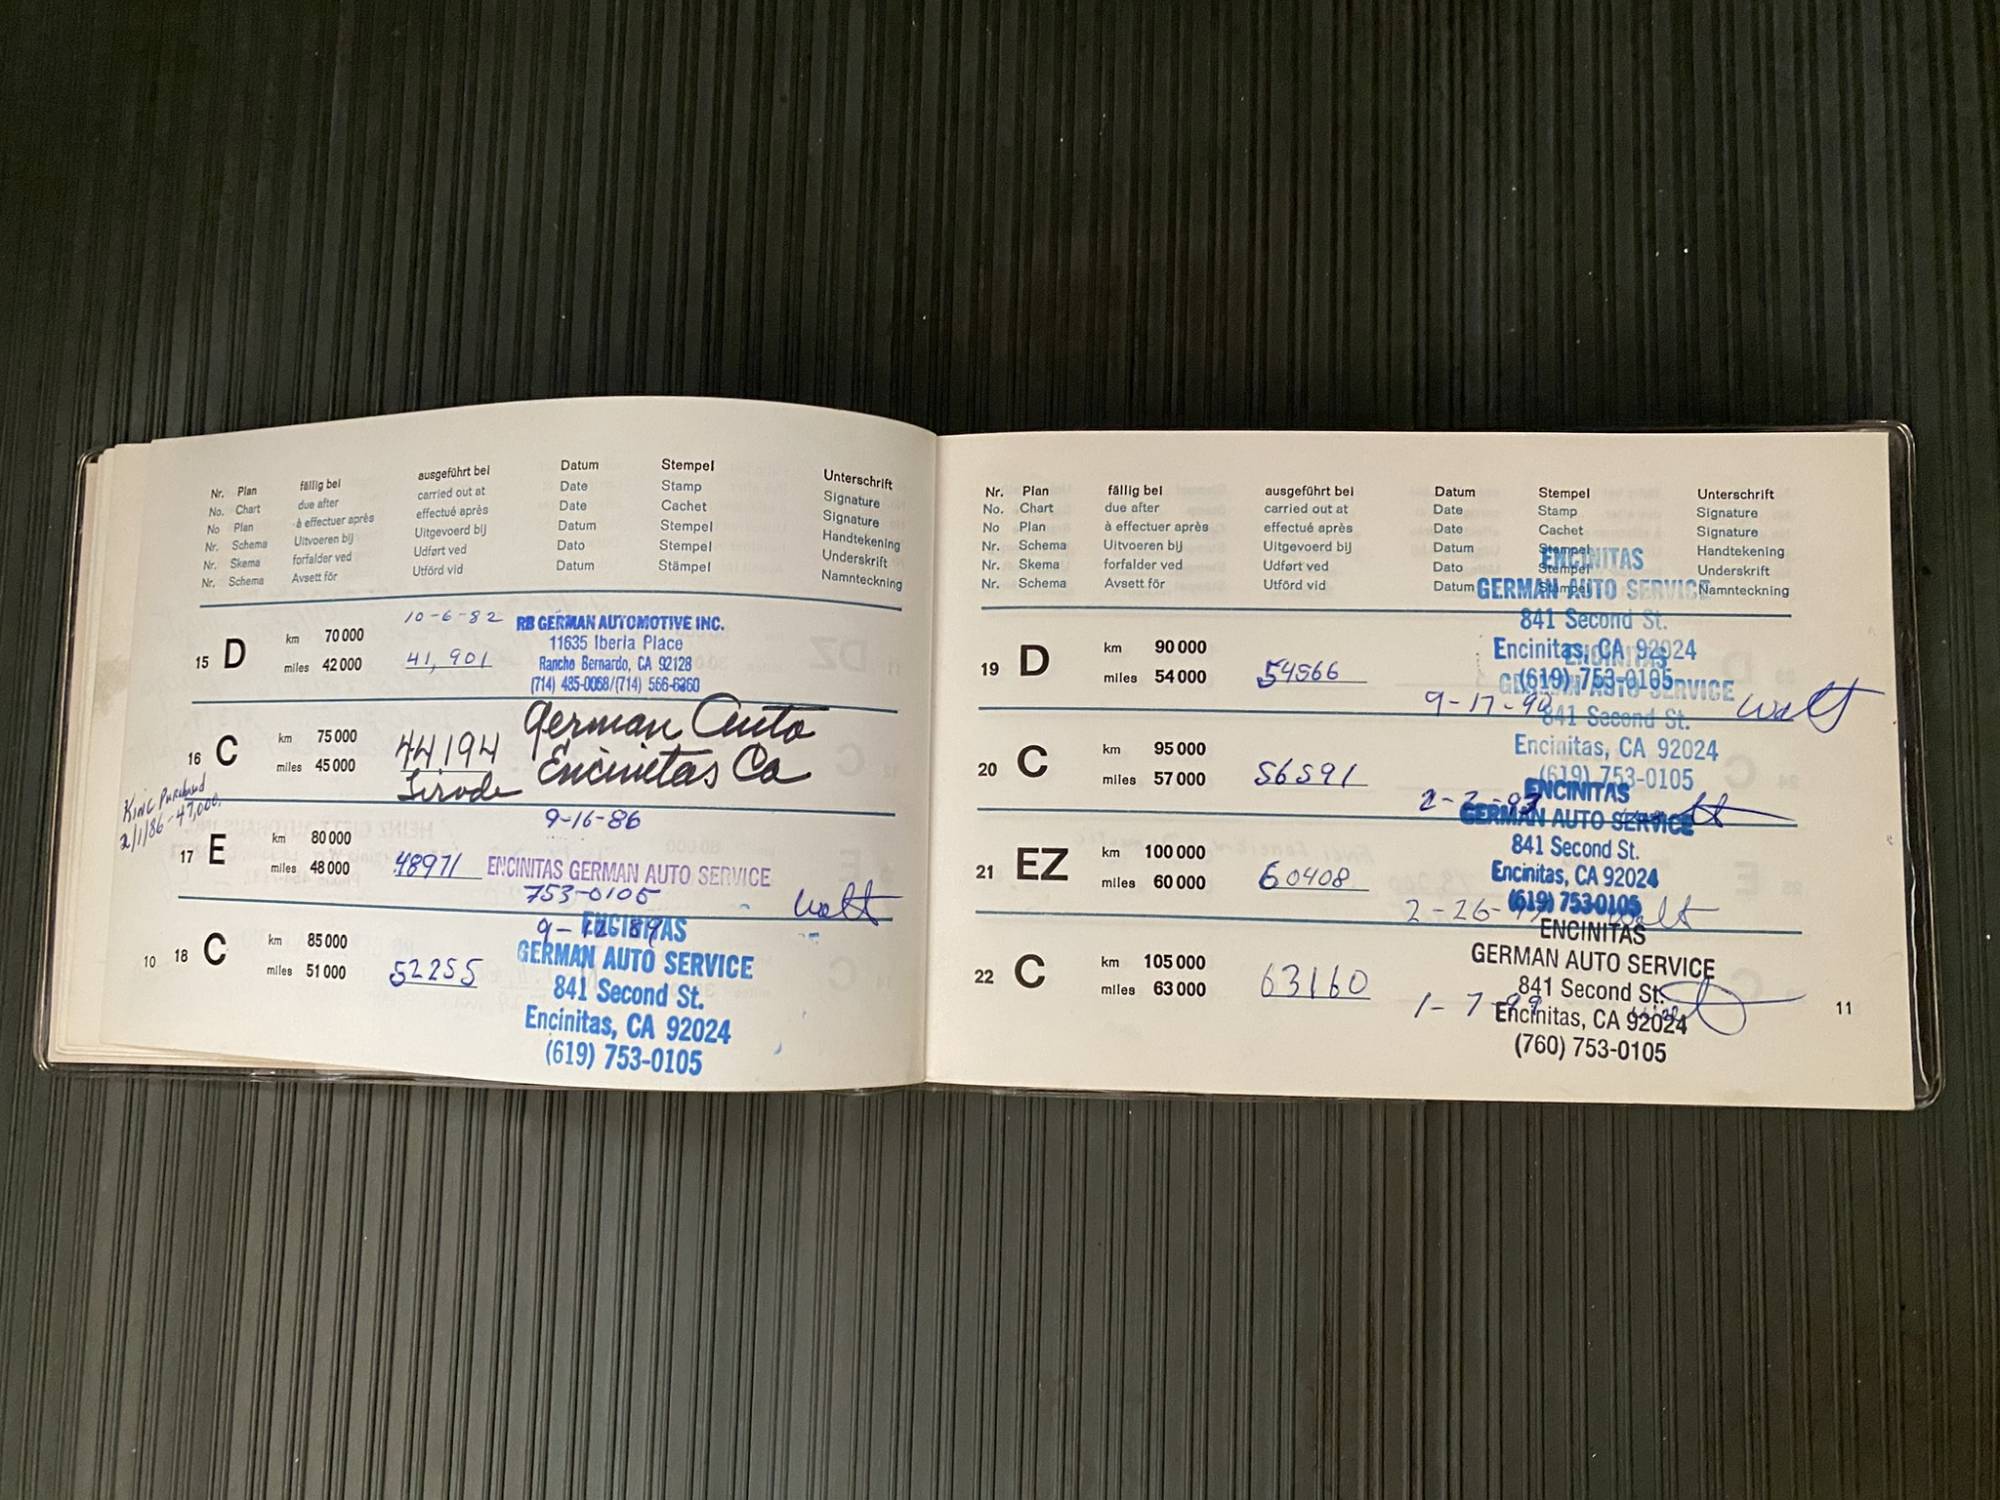 Nr. Plan fällig bei ausgeführt bei Datum Stempel Unterschrift
No. Chart due after carried out at Date Stamp Signature
No Plan à effectuer après effectué après Date Cachet Signature
Nr. Schema Uitvoeren bij Uitgevoerd bij Datum Stempel Handtekening
Nr. Skema forfalder ved Udført ved Dato Stempel Underskrift
Nr. Schema Avsett för Utförd vid Datum Stämpel Namnteckning
10-6-82 RB GERMAN AUTOMOTIVE INC.
15 D km 70 000 11635 Iberia Place
miles 42 000 41,901 Rancho Bernardo, CA 92128
(714) 485-0068/(714) 566-6360
16 C km 75 000 44194 German Auto
miles 45 000 Encinitas Ca
King Purchased
2/1/86-47,000.
9-16-86
17 E km 80 000
miles 48 000 48971 ENCINITAS GERMAN AUTO SERVICE
753-0105 Walt
ENCINITAS
10 18 C km 85 000 GERMAN AUTO SERVICE
miles 51 000 52255 841 Second St.
Encinitas, CA 92024
(619) 753-0105
Nr. Plan fällig bei ausgeführt bei Datum Stempel Unterschrift
No. Chart due after carried out at Date Stamp Signature
No Plan à effectuer après effectué après Date Cachet Signature
Nr. Schema Uitvoeren bij Uitgevoerd bij Datum Stempel Handtekening
Nr. Skema forfalder ved Udført ved Dato Stempel Underskrift
Nr. Schema Avsett för Utförd vid Datum Namnteckning
ENCINITAS
GERMAN AUTO SERVICE
841 Second St.
19 D km 90 000 Encinitas, CA 92024
miles 54 000 54566 (619) 753-0105
9-17-90 Walt
ENCINITAS
GERMAN AUTO SERVICE
841 Second St.
20 C km 95 000 Encinitas, CA 92024
miles 57 000 56591 (619) 753-0105
ENCINITAS
GERMAN AUTO SERVICE
21 EZ km 100 000 841 Second St.
miles 60 000 60408 Encinitas, CA 92024
(619) 753-0105
2-26- Walt
ENCINITAS
22 C km 105 000 GERMAN AUTO SERVICE
miles 63 000 63160 841 Second St.
1-7-99 Encinitas, CA 92024
(760) 753-0105
11